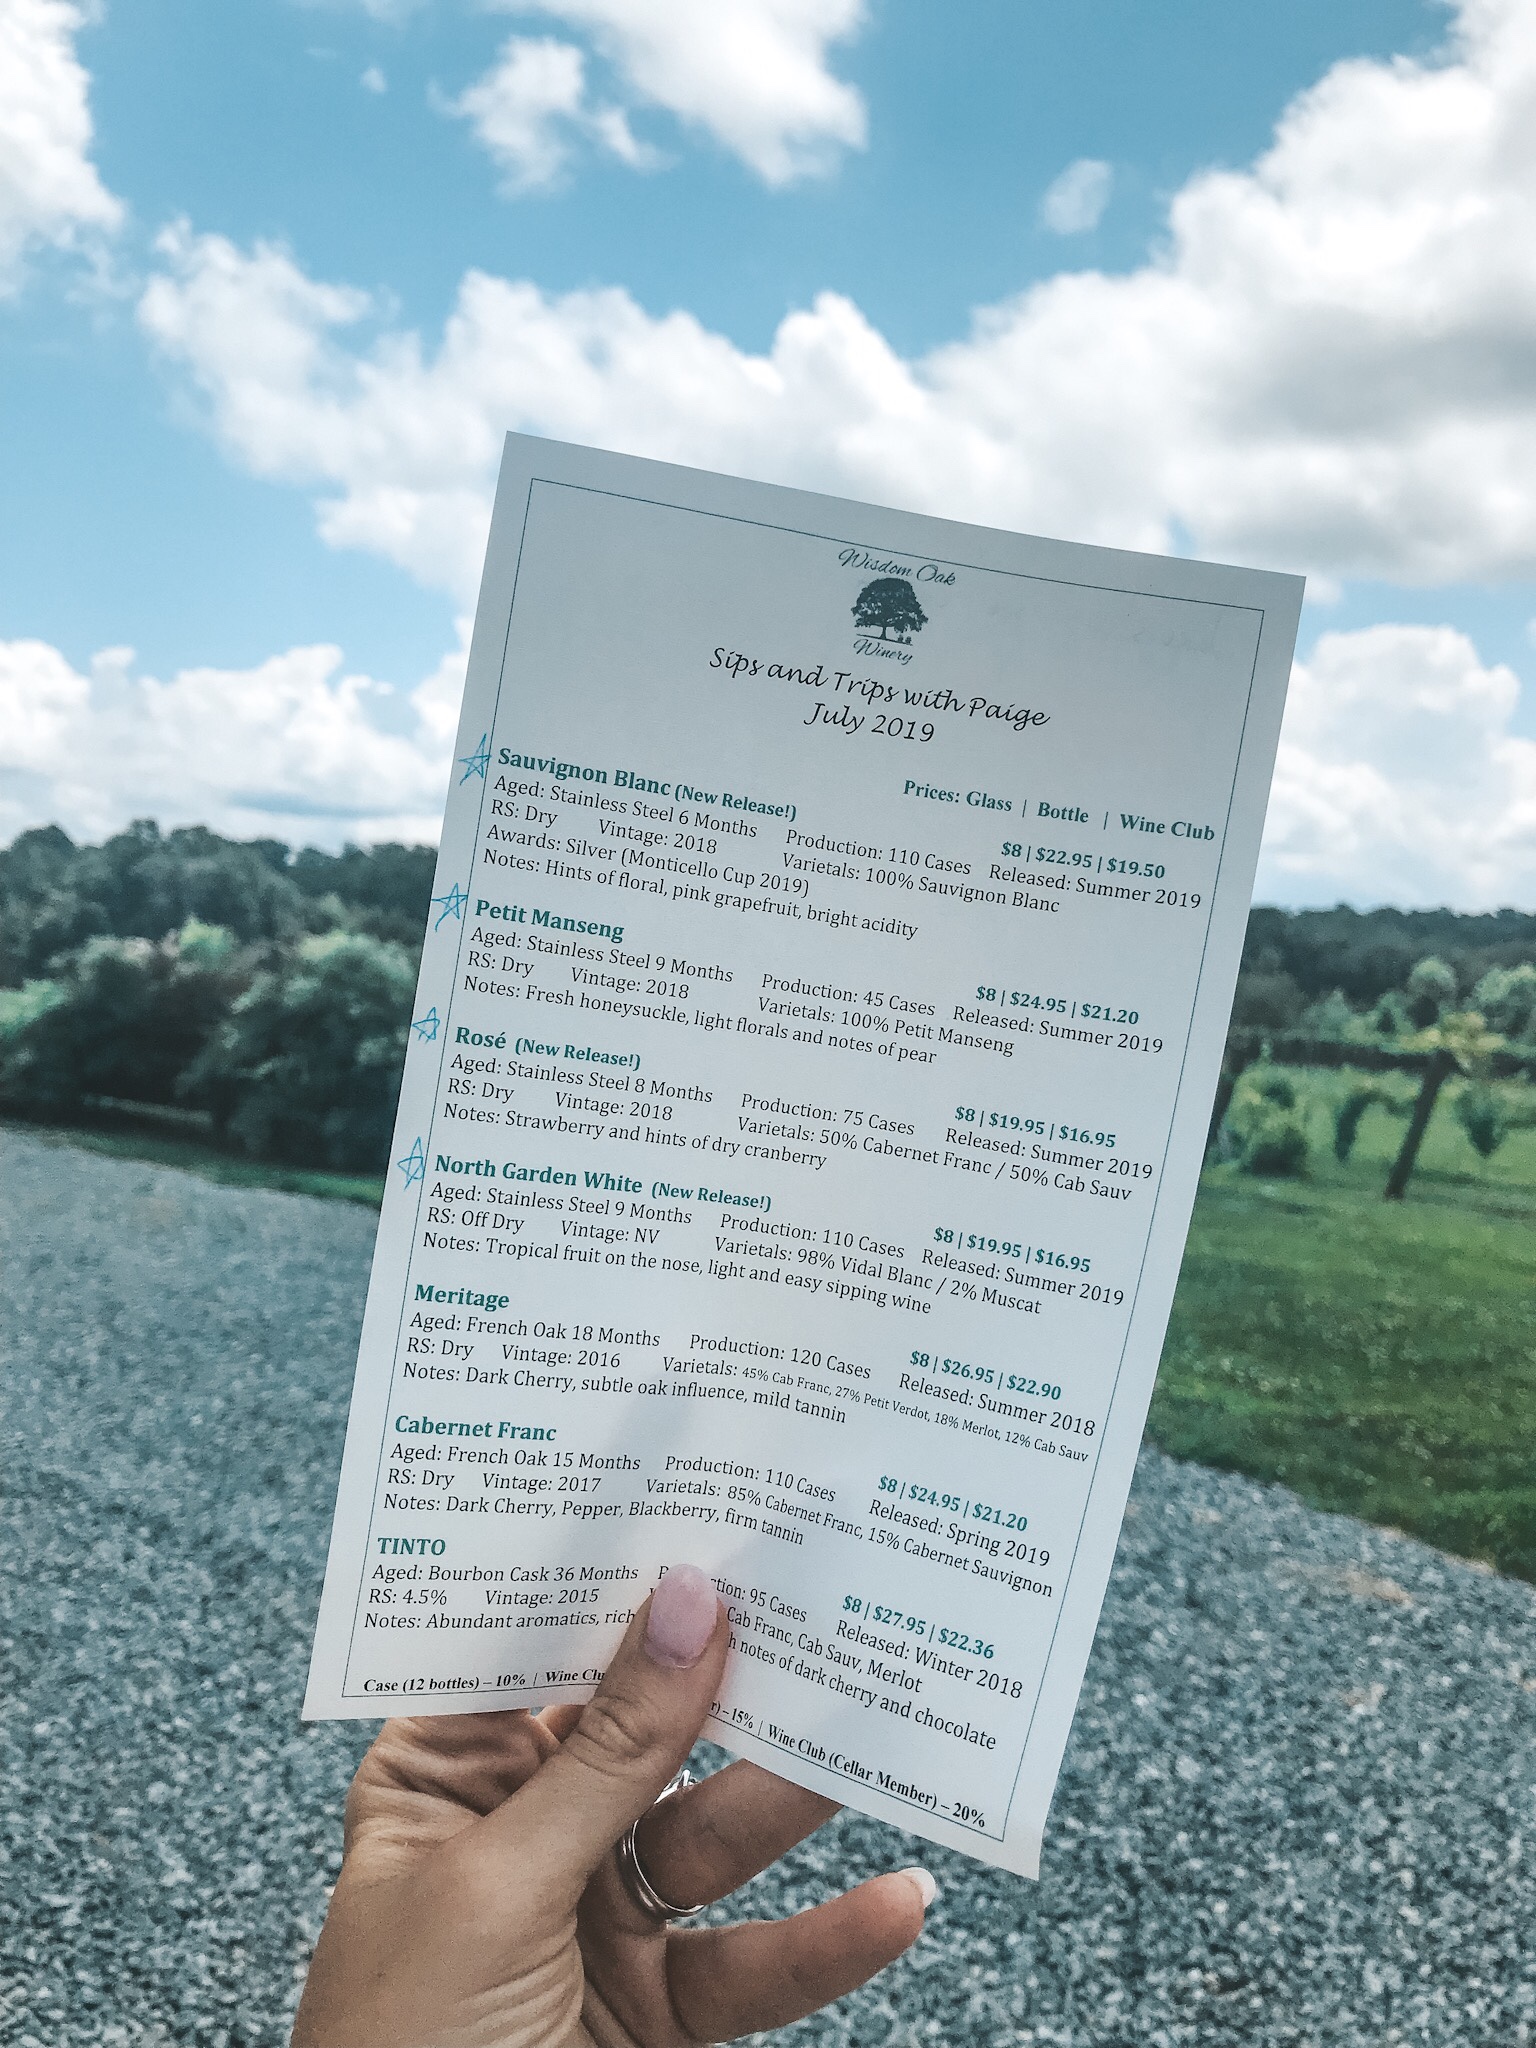 Wisdom Oak
Winery
Sips and Trips with Paige
July 2019
Prices: Glass | Bottle | Wine Club
Sauvignon Blanc (New Release!)
$8 | $22.95 | $19.50
Aged: Stainless Steel 6 Months Production: 110 Cases Released: Summer 2019
RS: Dry Vintage: 2018 Varietals: 100% Sauvignon Blanc
Awards: Silver (Monticello Cup 2019)
Notes: Hints of floral, pink grapefruit, bright acidity
Petit Manseng $8 | $24.95 | $21.20
Aged: Stainless Steel 9 Months Production: 45 Cases Released: Summer 2019
RS: Dry Vintage: 2018 Varietals: 100% Petit Manseng
Notes: Fresh honeysuckle, light florals and notes of pear
Rosé (New Release!) $8 | $19.95 | $16.95
Aged: Stainless Steel 8 Months Production: 75 Cases Released: Summer 2019
RS: Dry Vintage: 2018 Varietals: 50% Cabernet Franc / 50% Cab Sauv
Notes: Strawberry and hints of dry cranberry
North Garden White (New Release!) $8 | $19.95 | $16.95
Aged: Stainless Steel 9 Months Production: 110 Cases Released: Summer 2019
RS: Off Dry Vintage: NV Varietals: 98% Vidal Blanc / 2% Muscat
Notes: Tropical fruit on the nose, light and easy sipping wine
Meritage $8 | $26.95 | $22.90
Aged: French Oak 18 Months Production: 120 Cases Released: Summer 2018
RS: Dry Vintage: 2016 Varietals: 45% Cab Franc, 27% Petit Verdot, 18% Merlot, 12% Cab Sauv
Notes: Dark Cherry, subtle oak influence, mild tannin
Cabernet Franc $8 | $24.95 | $21.20
Aged: French Oak 15 Months Production: 110 Cases Released: Spring 2019
RS: Dry Vintage: 2017 Varietals: 85% Cabernet Franc, 15% Cabernet Sauvignon
Notes: Dark Cherry, Pepper, Blackberry, firm tannin
TINTO $8 | $27.95 | $22.36
Aged: Bourbon Cask 36 Months 95 Cases Released: Winter 2018
RS: 4.5% Vintage: 2015 Cab Franc, Cab Sauv, Merlot
Notes: Abundant aromatics, rich notes of dark cherry and chocolate
Case (12 bottles) – 10% | Wine – 15% | Wine Club (Cellar Member) – 20%